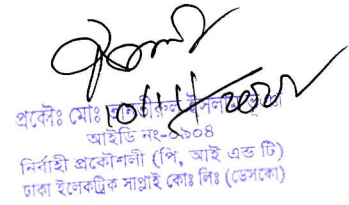 10/11/2022
প্রকৌঃ মোঃ
আইডি নং-০৯০৪
নির্বাহী প্রকৌশলী (পি, আই এন্ড টি)
ঢাকা ইলেকট্রিক সাপ্লাই কোঃ লিঃ (ডেসকো)